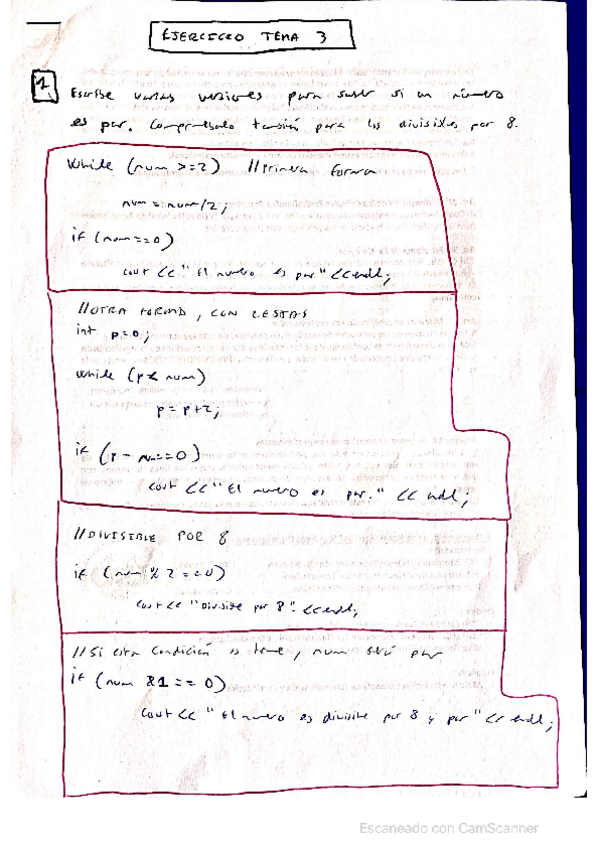 EJERCICIO TEMA 3
1
Escribe varias versiones para saber si un número
es par. Compruébalo también para los divisibles por 8.
While (num >=2) //Primera forma
num = num/2;
if (num==0)
cout << "El numero es par" <<endl;
//OTRA FORMA, CON RESTAS
int p=0;
While (p< num)
p = p+2;
if (p - num==0)
cout << "El numero es par." << endl;
//DIVISIBLE POR 8
if (num % 2 ==0)
cout << "Divisible por 8" <<endl;
//Si esta condición es true, num será par
if (num &1 == 0)
cout << "El numero es divisible por 8 y par" << endl;
Escaneado con CamScanner